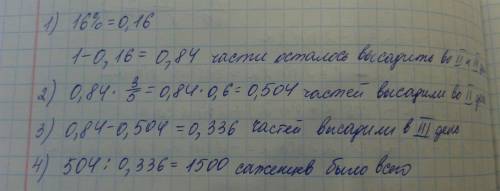 1) 16% = 0,16
1-0,16 = 0,84 части осталось высадить во II и III день
2) 0,84 · 3/5 = 0,84 · 0,6 = 0,504 частей высадили во II день
3) 0,84-0,504 = 0,336 частей высадили в III день
4) 504 : 0,336 = 1500 саженцев было всего